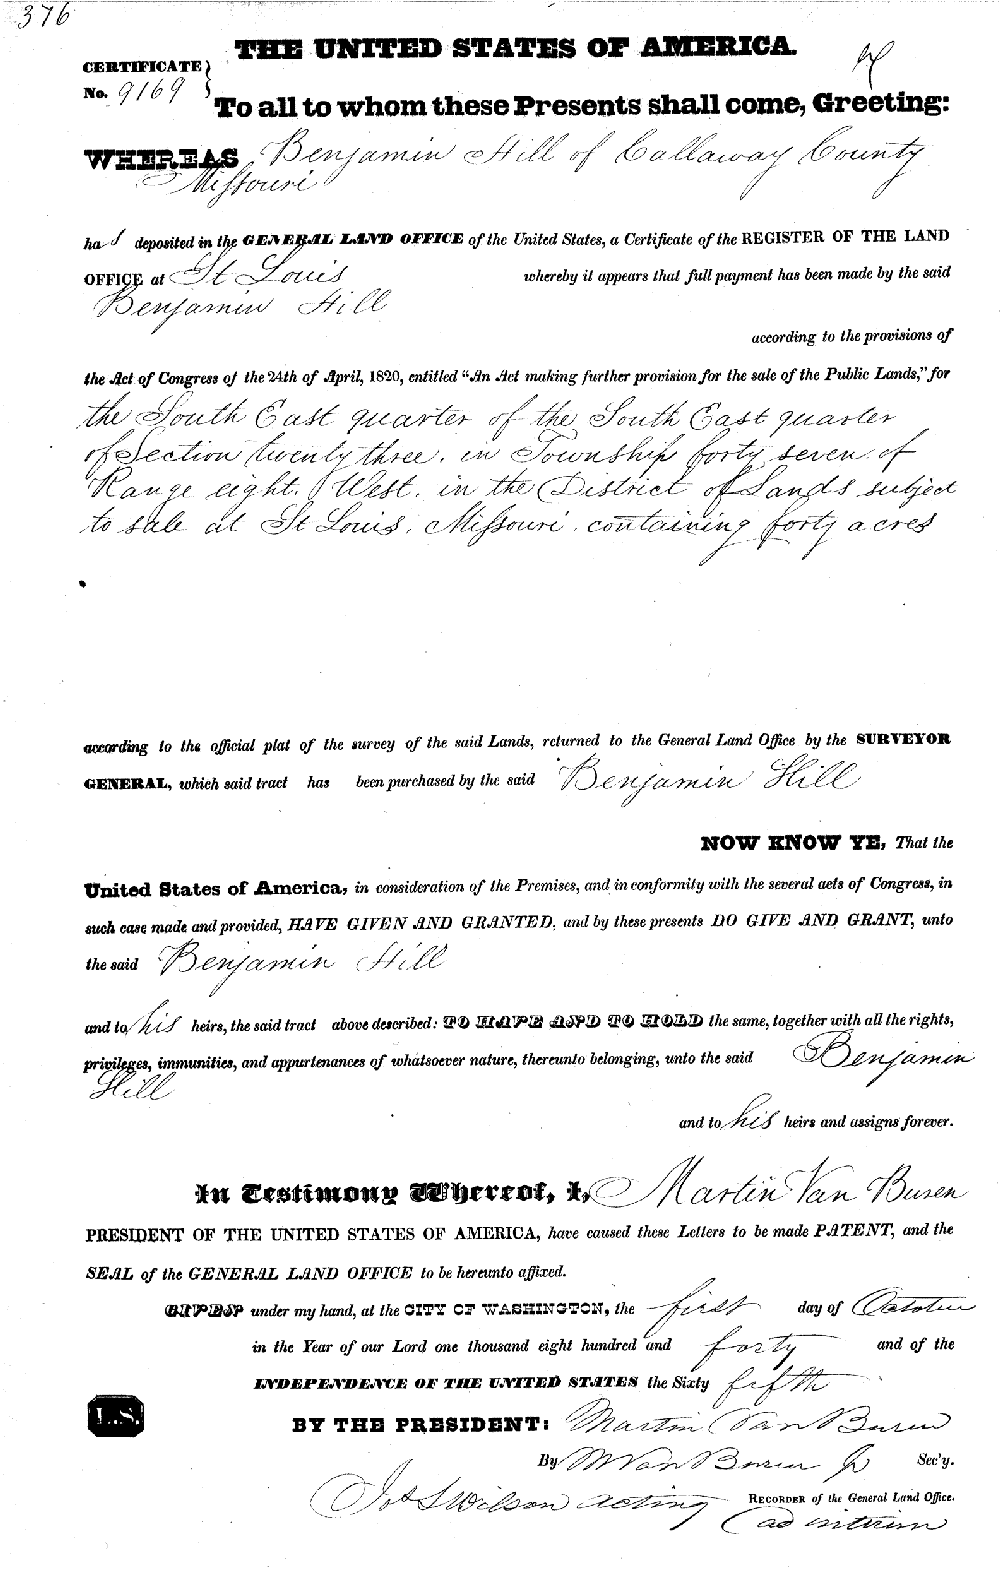 376
THE UNITED STATES OF AMERICA.
CERTIFICATE
No. 9169
To all to whom these Presents shall come, Greeting:
WHEREAS Benjamin Hill of Callaway County
Missouri
has deposited in the GENERAL LAND OFFICE of the United States, a Certificate of the REGISTER OF THE LAND
OFFICE at St Louis whereby it appears that full payment has been made by the said
Benjamin Hill
according to the provisions of
the Act of Congress of the 24th of April, 1820, entitled "An Act making further provision for the sale of the Public Lands," for
the South East quarter of the South East quarter
of Section twenty three. in Township forty seven. of
Range eight. West. in the District of Lands subject
to sale at St Louis. Missouri. containing forty acres
according to the official plat of the survey of the said Lands, returned to the General Land Office by the SURVEYOR
GENERAL, which said tract has been purchased by the said Benjamin Hill
NOW KNOW YE, That the
United States of America, in consideration of the Premises, and in conformity with the several acts of Congress, in
such case made and provided, HAVE GIVEN AND GRANTED, and by these presents DO GIVE AND GRANT, unto
the said Benjamin Hill
and to his heirs, the said tract above described: TO HAVE AND TO HOLD the same, together with all the rights,
privileges, immunities, and appurtenances of whatsoever nature, thereunto belonging, unto the said Benjamin
Hill
and to his heirs and assigns forever.
In Testimony Whereof, I, Martin Van Buren
PRESIDENT OF THE UNITED STATES OF AMERICA, have caused these Letters to be made PATENT, and the
SEAL of the GENERAL LAND OFFICE to be hereunto affixed.
GIVEN under my hand, at the CITY OF WASHINGTON, the first day of October
in the Year of our Lord one thousand eight hundred and forty and of the
INDEPENDENCE OF THE UNITED STATES the Sixty fifth
L.S.
BY THE PRESIDENT: Martin Van Buren
By M Van Buren Jr Sec'y.
Jos S Wilson acting RECORDER of the General Land Office.
ad interim